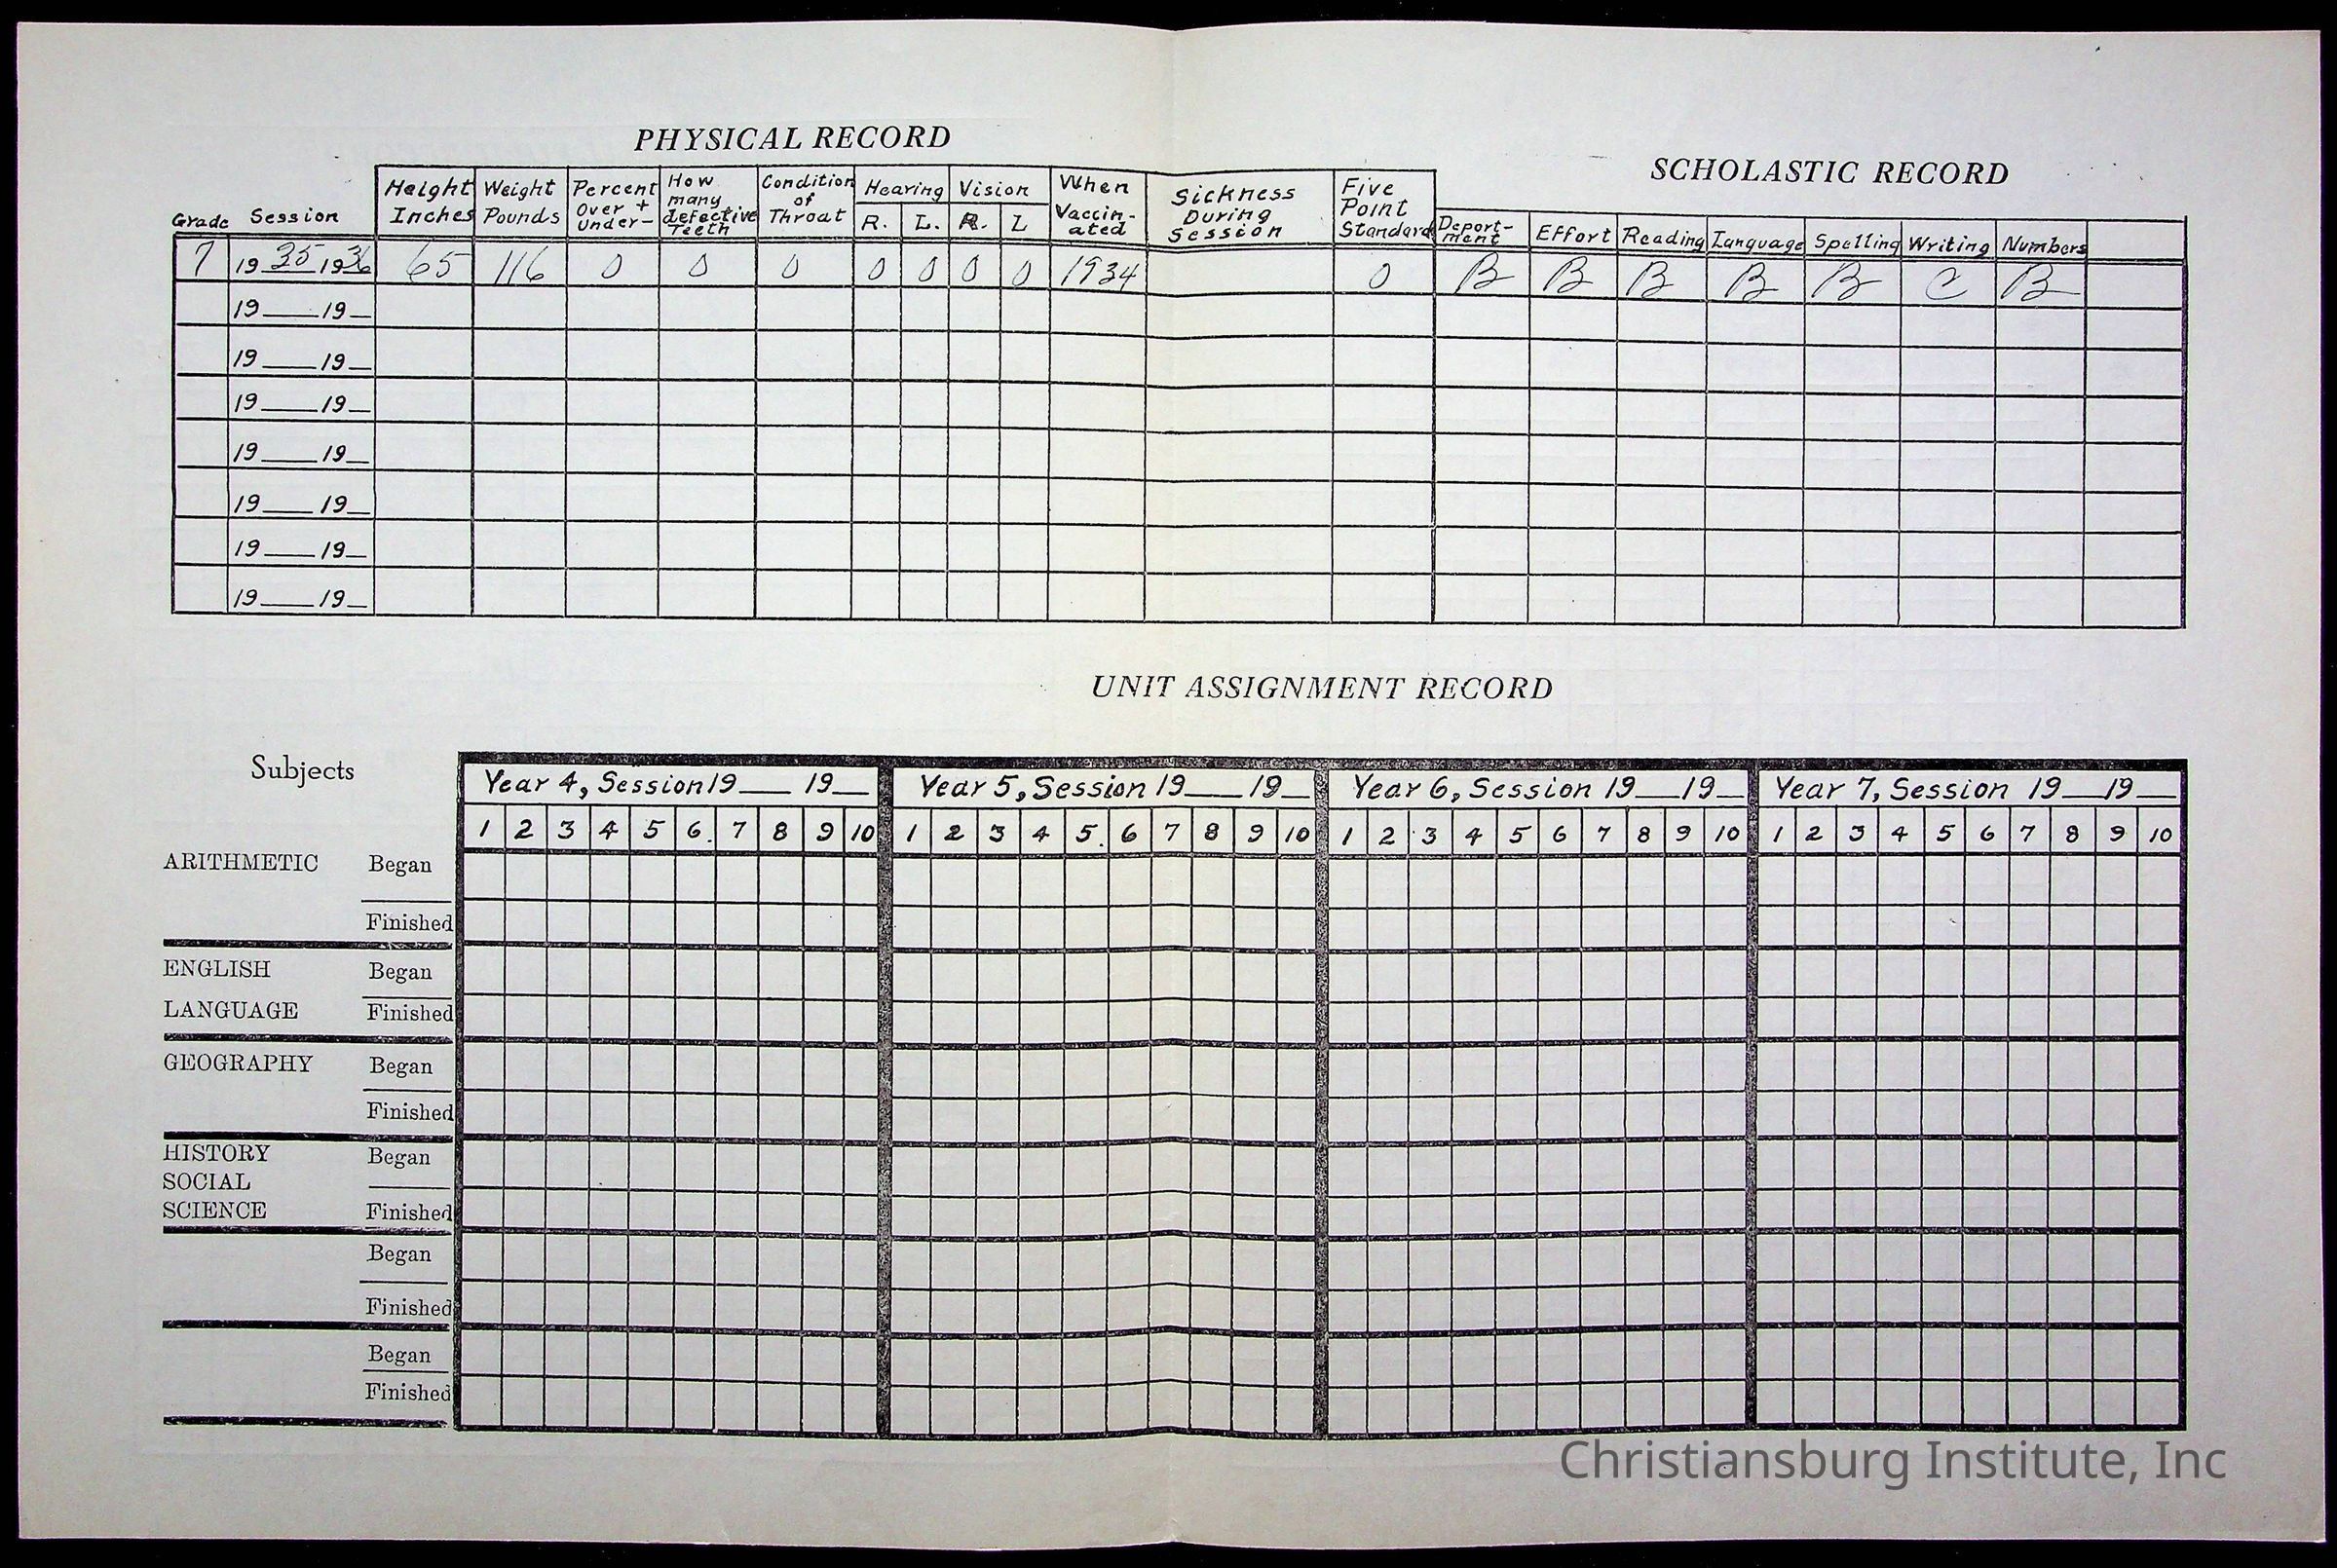 PHYSICAL RECORD
SCHOLASTIC RECORD
Grade Session Height Inches Weight Pounds Percent Over + Under - How many defective Teeth Condition of Throat Hearing R. L. Vision R. L When Vaccin-ated Sickness During Session Five Point Standard Deport-ment Effort Reading Language Spelling Writing Numbers
7 19 35 19 36 65 116 0 0 0 0 0 0 0 1934 0 B B B B B C B
19___19_
19___19_
19___19_
19___19_
19___19_
19___19_
19___19_
UNIT ASSIGNMENT RECORD
Subjects
Year 4, Session 19___ 19__ Year 5, Session 19___19__ Year 6, Session 19__19__ Year 7, Session 19__19__
1 2 3 4 5 6. 7 8 9 10 1 2 3 4 5. 6 7 8 9 10 1 2 3 4 5 6 7 8 9 10 1 2 3 4 5 6 7 8 9 10
ARITHMETIC Began
Finished
ENGLISH Began
LANGUAGE Finished
GEOGRAPHY Began
Finished
HISTORY Began
SOCIAL
SCIENCE Finished
Began
Finished
Began
Finished
Christiansburg Institute, Inc